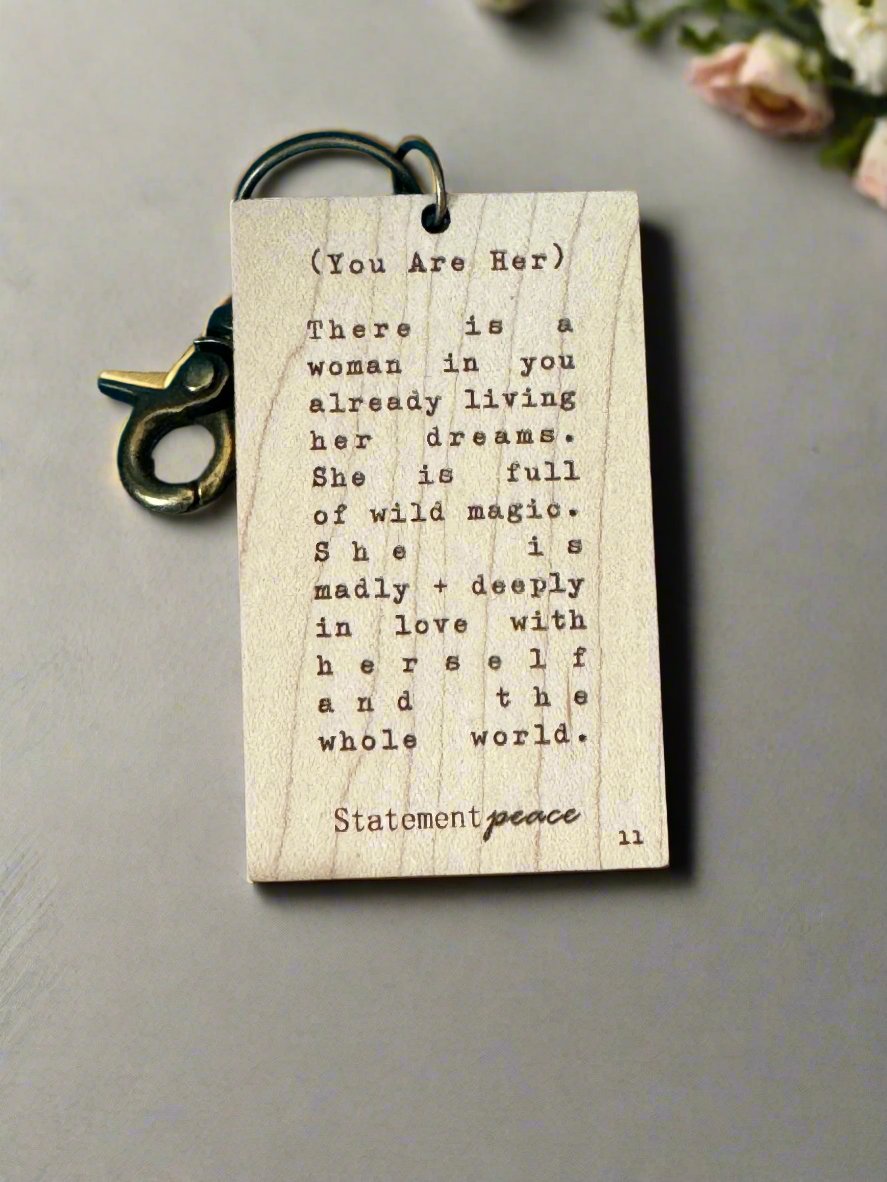 (You Are Her)
There is a
woman in you
already living
her dreams.
She is full
of wild magic.
She is
madly + deeply
in love with
herself
and the
whole world.
Statementpeace
11